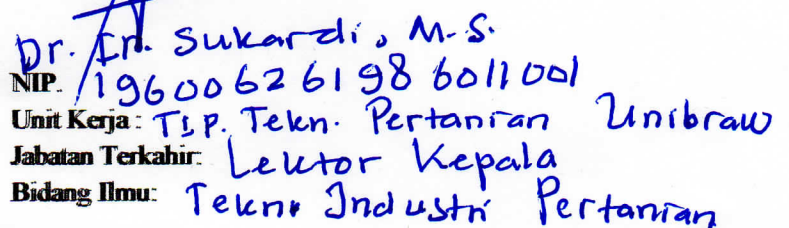 Dr. Ir. Sukardi, M.S.
NIP. 196006261986011001
Unit Kerja : TIP. Tekn. Pertanian Unibraw
Jabatan Terkahir: Lektor Kepala
Bidang Ilmu: Tekn. Industri Pertanian